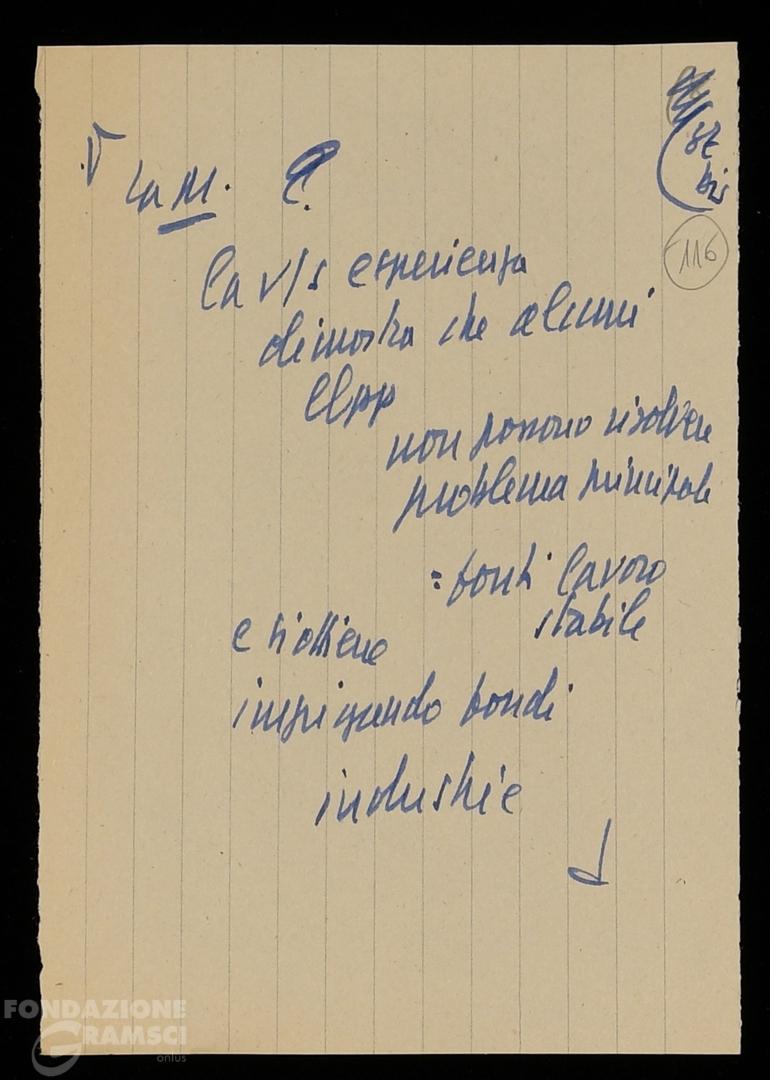 52
bis
116
La M.
la v/s esperienza
dimostra che alcuni
llpp
non possono risolvere
problema principale
= fonti lavoro
stabile
e si ottiene
impiegando fondi
industrie
FONDAZIONE
GRAMSCI
onlus